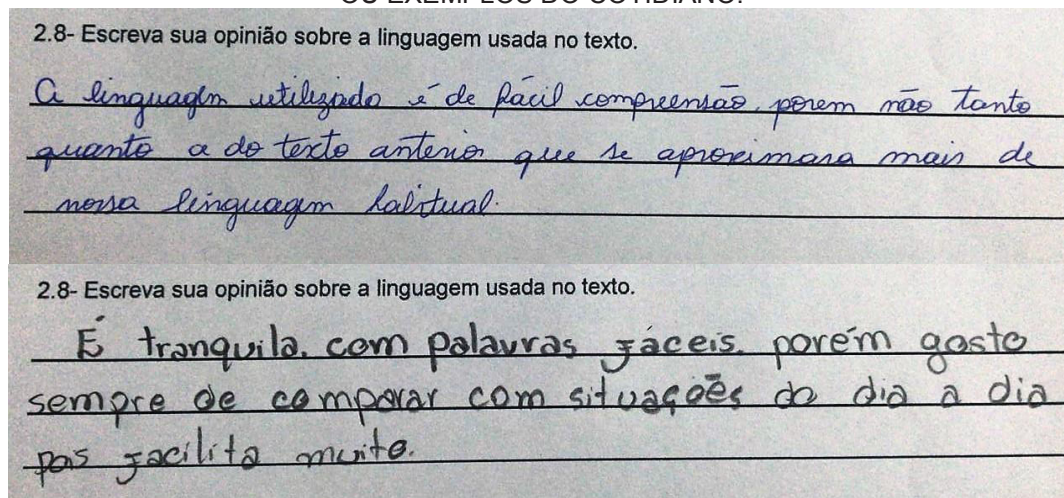 OU EXEMPLOS DO COTIDIANO.
2.8- Escreva sua opinião sobre a linguagem usada no texto.
A linguagem utilizada é de fácil compreensão, porem não tanto
quanto a do texto anterior que se aproximava mais de
nossa linguagem habitual.
2.8- Escreva sua opinião sobre a linguagem usada no texto.
É tranquila. com palavras fáceis. porém gosto
sempre de comparar com situações do dia a dia
pois facilita muito.